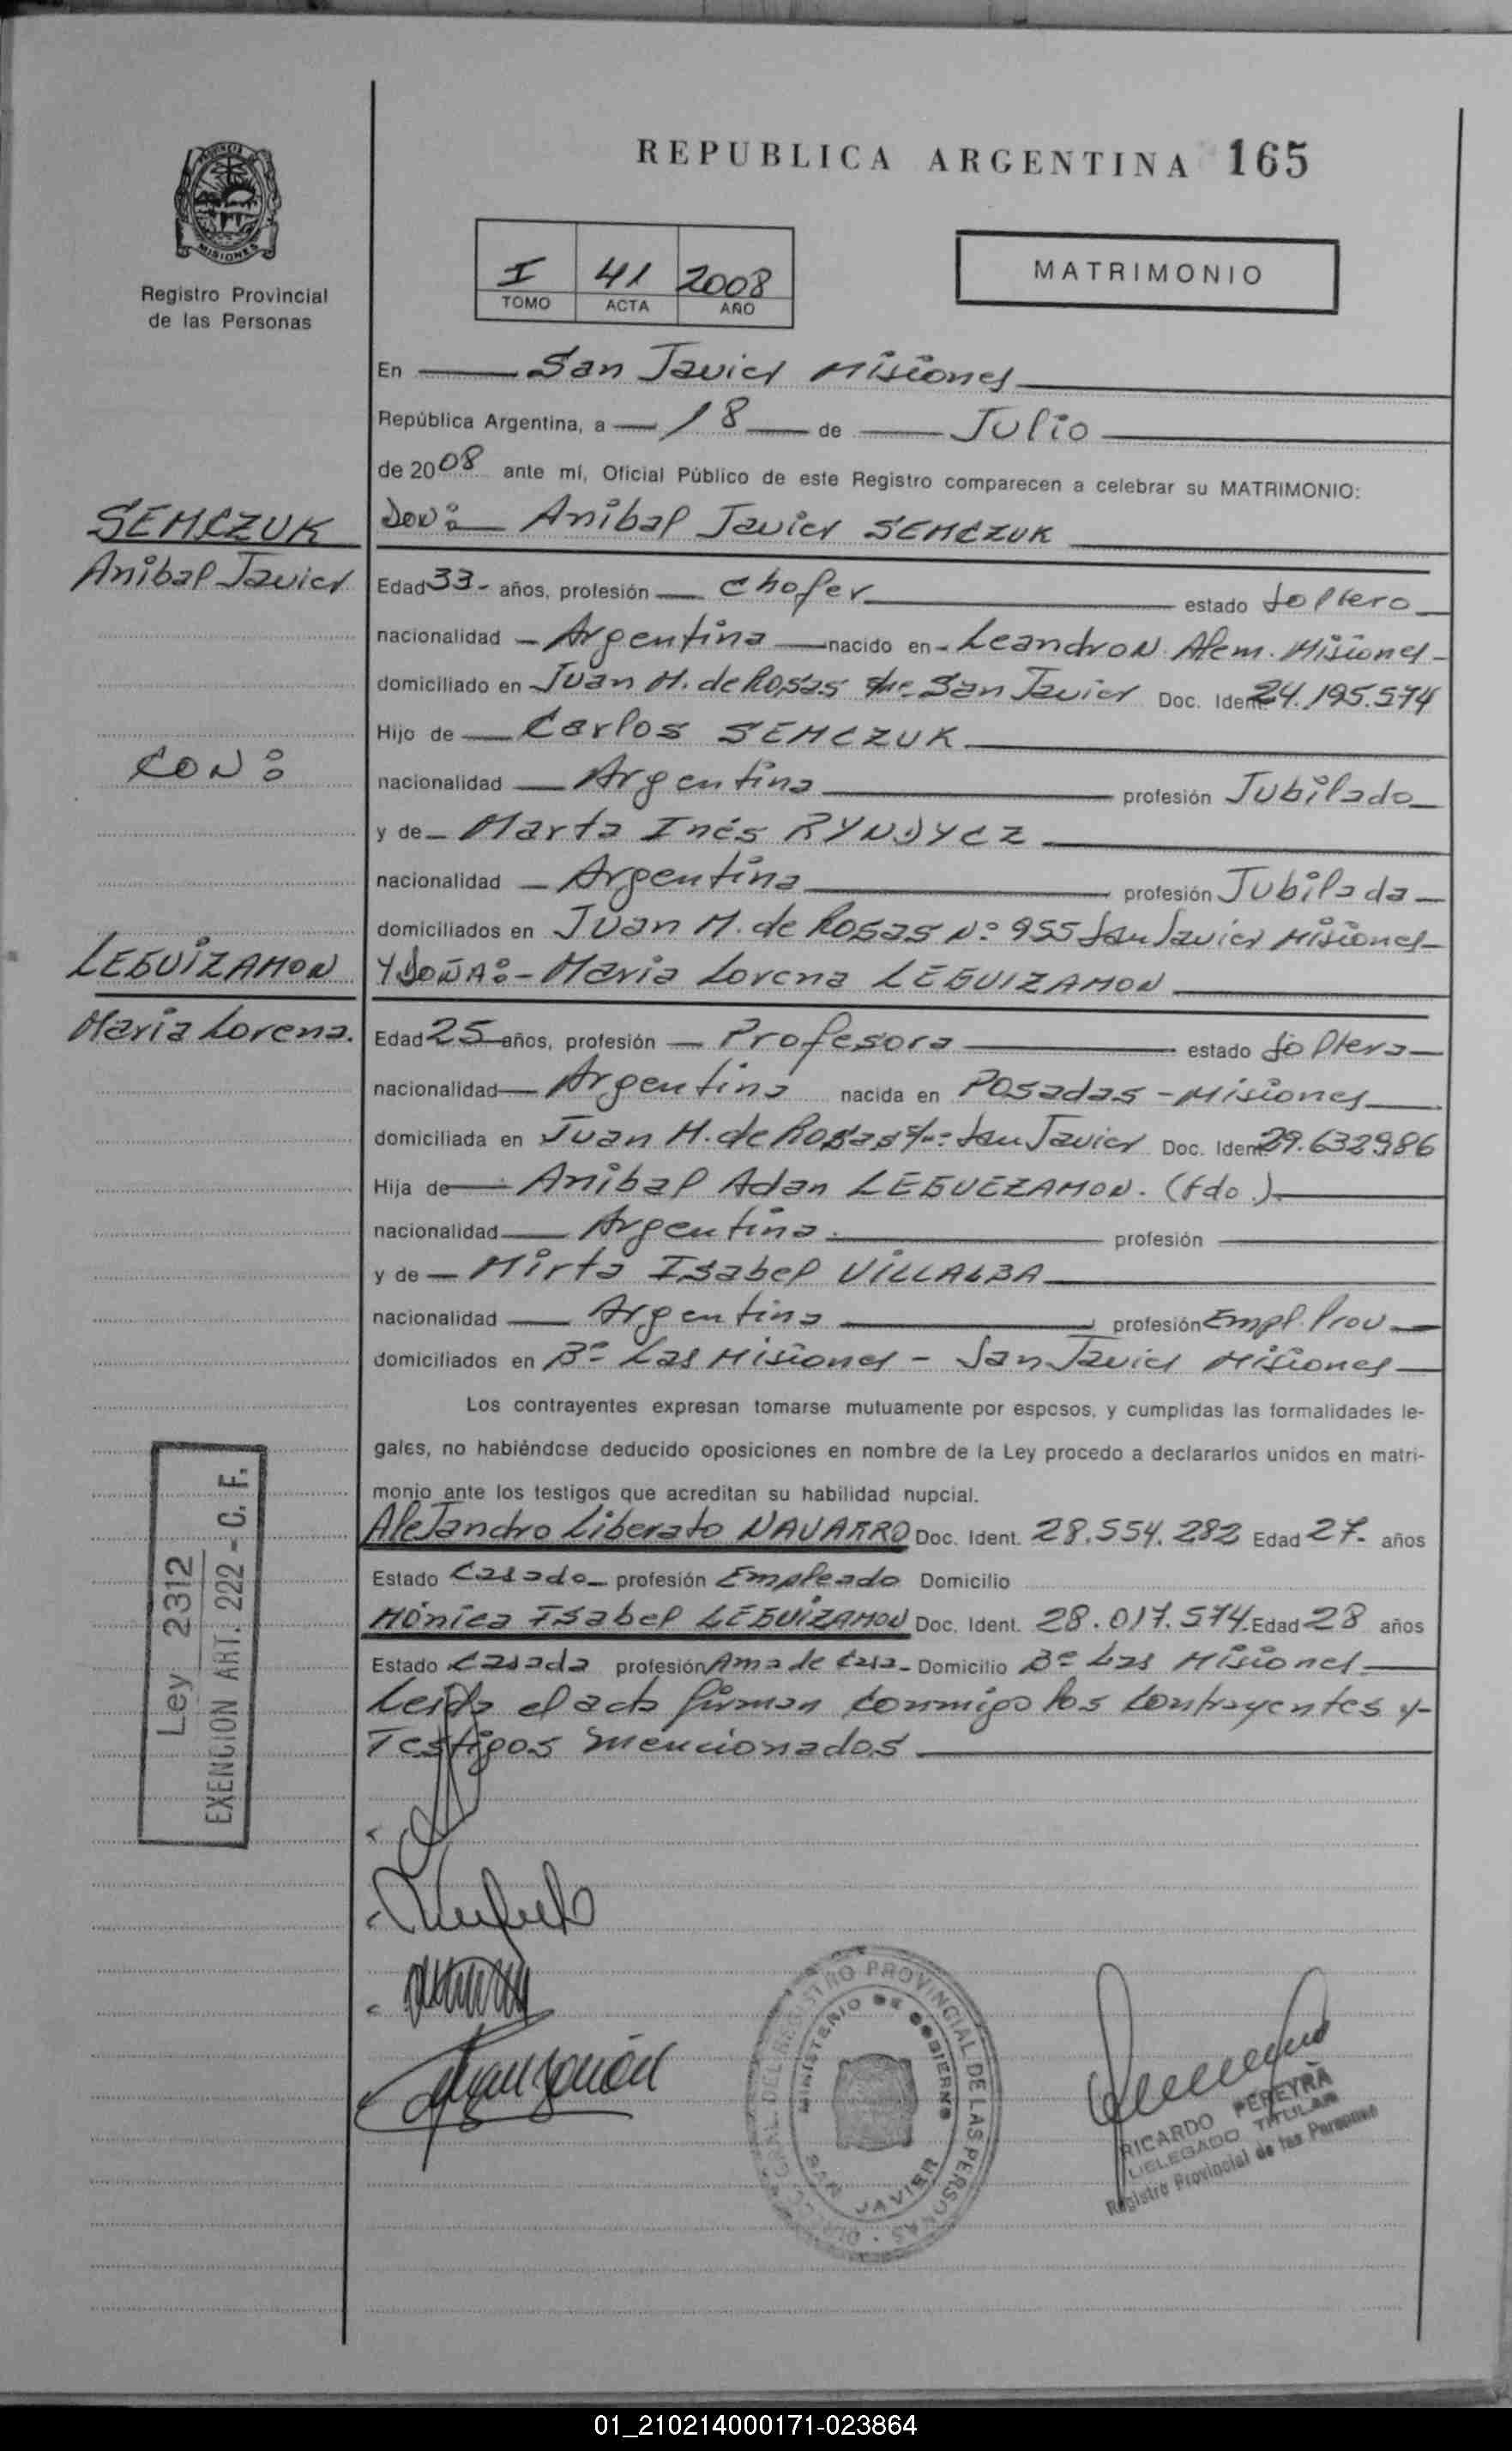 REPUBLICA ARGENTINA 165
MISIONES
Registro Provincial
de las Personas
I 41 2008
TOMO ACTA AÑO
MATRIMONIO
En San Javier Misiones
República Argentina, a 18 de Julio
de 2008 ante mí, Oficial Público de este Registro comparecen a celebrar su MATRIMONIO:
SEMCZUK
Anibal Javier
DON: Anibal Javier SEMCZUK
Edad 33- años, profesión chofer estado soltero
nacionalidad Argentina nacido en Leandro N. Alem. Misiones
domiciliado en Juan M. de Rosas San Javier Doc. Ident. 24.195.574
Hijo de Carlos SEMCZUK
CON:
nacionalidad Argentina profesión Jubilado
y de Marta Inés RYNDYCZ
nacionalidad Argentina profesión Jubilada
domiciliados en Juan M. de Rosas Nº 955 San Javier Misiones
LEGUIZAMON
Maria Lorena.
Y DOÑA:- Maria Lorena LEGUIZAMON
Edad 25 años, profesión Profesora estado soltera
nacionalidad Argentina nacida en Posadas - Misiones
domiciliada en Juan M. de Rosas San Javier Doc. Ident. 29.632986
Hija de Anibal Adan LEGUEZAMON. (fdo.)
nacionalidad Argentina. profesión
y de Mirta Isabel VILLALBA
nacionalidad Argentina profesión Empl. Prov
domiciliados en Bº Las Misiones - San Javier Misiones
Los contrayentes expresan tomarse mutuamente por esposos, y cumplidas las formalidades le-
gales, no habiéndose deducido oposiciones en nombre de la Ley procedo a declararlos unidos en matri-
monio ante los testigos que acreditan su habilidad nupcial.
Alejandro Liberato NAVARRO Doc. Ident. 28.554.282 Edad 27- años
Estado Casado profesión Empleado Domicilio
Mónica Isabel LEGUIZAMON Doc. Ident. 28.017.574. Edad 28 años
Estado Casada profesión Ama de Casa- Domicilio Bº Las Misiones
Leida el acta firman conmigo los contrayentes y-
Testigos mencionados
Ley 2312
EXENCION ART. 222 - C. F.
DIRECC. GRAL. DEL REGISTRO PROVINCIAL DE LAS PERSONAS
MINISTERIO DE GOBIERNO
SAN JAVIER
RICARDO PEREYRA
DELEGADO TITULAR
Registro Provincial de las Personas
01_210214000171-023864